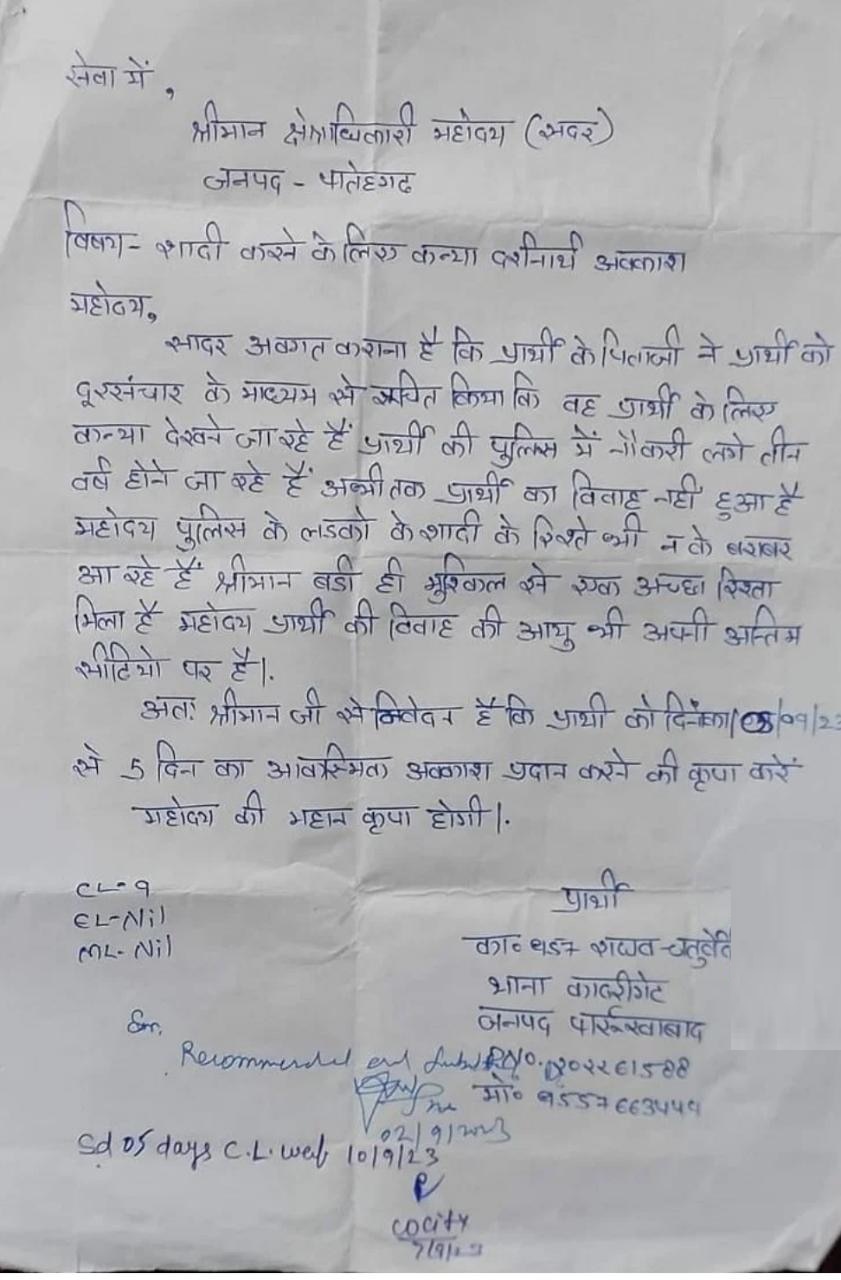 सेवा में,
श्रीमान क्षेत्राधिकारी महोदय (सदर)
जनपद - फतेहगढ
विषय - शादी करने के लिए कन्या दर्शनार्थ अवकाश
महोदय,
सादर अवगत कराना है कि प्रार्थी के पिताजी ने प्रार्थी को
दूरसंचार के माध्यम से सूचित किया कि वह प्रार्थी के लिए
कन्या देखने जा रहे हैं प्रार्थी की पुलिस में नौकरी लगे तीन
वर्ष होने जा रहे हैं अभी तक प्रार्थी का विवाह नहीं हुआ है
महोदय पुलिस के लडको के शादी के रिश्ते भी न के बराबर
आ रहे हैं श्रीमान बडी ही मुश्किल से एक अच्छा रिश्ता
मिला है महोदय प्रार्थी की विवाह की आयु भी अपनी अन्तिम
सीढियो पर है।.
अतः श्रीमान जी से निवेदन है कि प्रार्थी को दिनांक
से 5 दिन का आकस्मिक अवकाश प्रदान करने की कृपा करें
महोदय की महान कृपा होगी।.
CL- 9
EL-Nil
ML- Nil
प्रार्थी
का० 957 राघव चतुर्वेदी
थाना कादरीगेट
जनपद फर्रूखाबाद
Sir,
Recommended and
PNo. 202261588
मो० 9557663449
02/9/2023
Sd 05 days C.L. wef 10/9/23
CO City